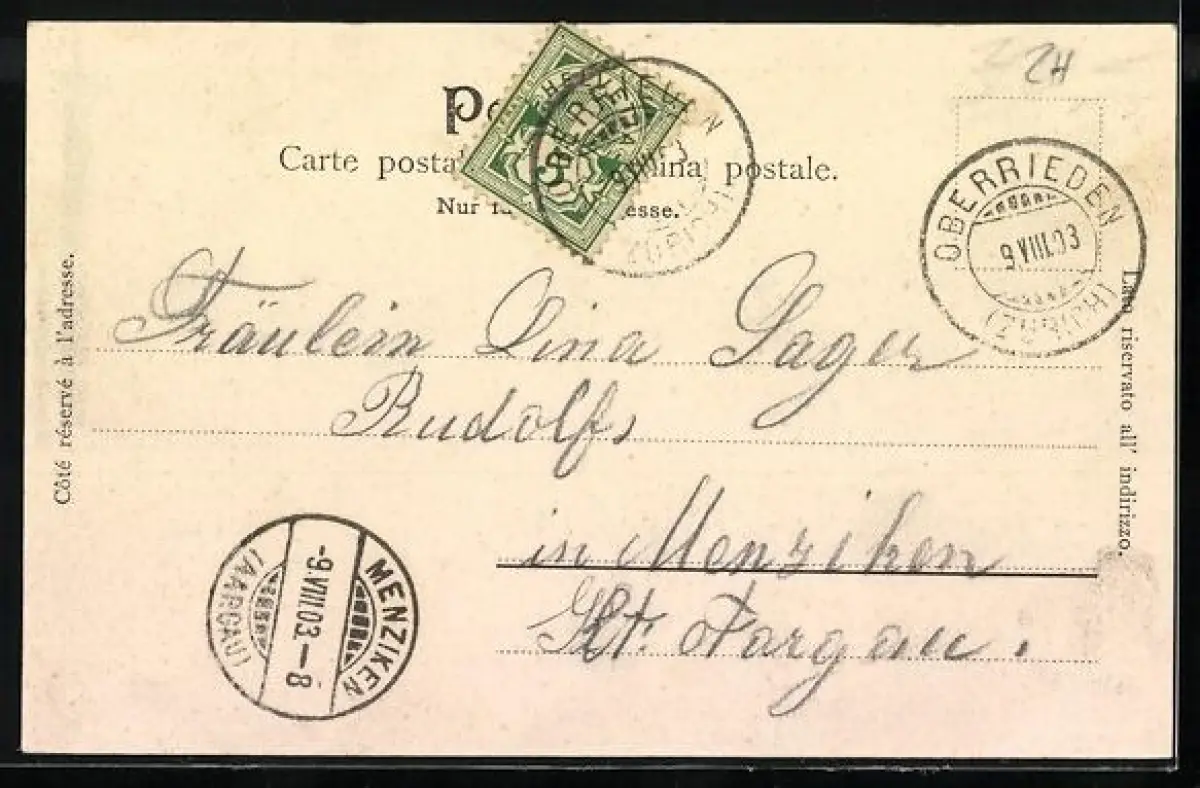 ZH
Carte postale. ... postale.
Nur f ... esse.
OBERRIEDEN
9.VIII.03
(ZÜRICH)
OBERRIEDEN
9.VIII.03
(ZÜRICH)
Côté réservé à l'adresse.
Lato riservato all' indirizzo.
Fräulein Lina Sager
Rudolfs
in Menziken
Kt. Aargau.
MENZIKEN
-9.VIII.03.-8
(AARGAU)